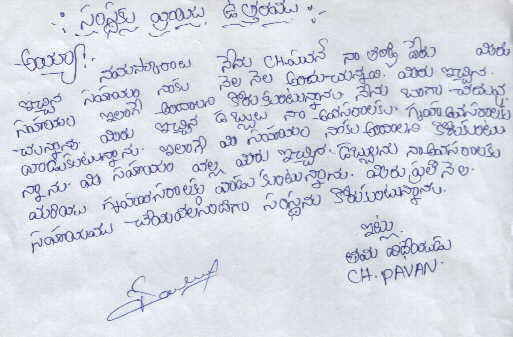 సంస్థకు వ్రాయు ఉత్తరము
అయ్యా!
నమస్కారాలు నేను CH పవన్ నా తండ్రి పేరు మీరు
ఇచ్చిన సహాయం నాకు నెల నెల అందుచున్నాయి. మీరు ఇచ్చిన
సహాయం ఇలాగే అందాలని కోరుకుంటున్నాను. నేను బాగా చదువు
చున్నాను. మీరు ఇచ్చిన డబ్బులు నా అవసరాలకు గృహావసరాలకు
వాడుకుంటున్నాను. ఇలాగే మీ సహాయం నాకు అందాలని కోరుకుంటు
న్నాను. మీ సహాయం వల్ల మీరు ఇచ్చిన డబ్బులను నా అవసరాలకు
మరియు గృహావసరాలకు వాడుకుంటున్నాను. మీరు ప్రతి నెల
సహాయము చేయవలసిందిగా సంస్థను కోరుకుంటున్నాను.
ఇట్లు
తమ విధేయుడు
CH. PAVAN.